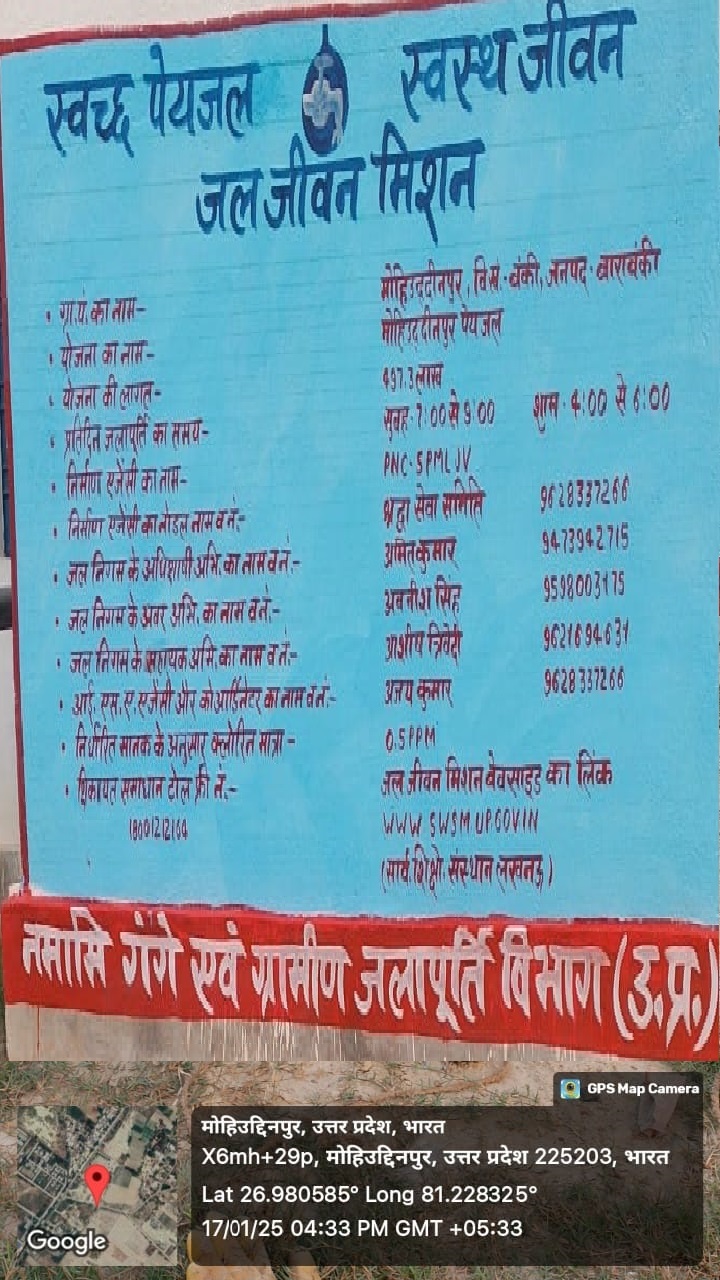 स्वच्छ पेयजल स्वस्थ जीवन
जल जीवन मिशन
• ग्रा.पं. का नाम- मोहिउद्दीनपुर, वि.ख.- बंकी, जनपद- बाराबंकी
• योजना का नाम- मोहिउद्दीनपुर पेयजल
• योजना की लागत- 497.3 लाख
• प्रतिदिन जलापूर्ति का समय- सुबह- 7:00 से 9:00 शाम- 4:00 से 6:00
• निर्माण एजेंसी का नाम- PNC-SPML JV
• निर्माण एजेंसी का नोडल नाम व नं:- श्रद्धा सेवा समिति 9628337266
• जल निगम के अधिशाषी अभि. का नाम व नं:- अमित कुमार 9473942715
• जल निगम के अवर अभि. का नाम व नं:- अवनीश सिंह
• जल निगम के सहायक अभि. का नाम व नं:- आशीष त्रिवेदी
• आई. एस. ए. एजेंसी और कोआर्डिनेटर का नाम व नं:- अजय कुमार 9628337266
• निर्धारित मानक के अनुसार क्लोरिन मात्रा - 0.5 PPM
• शिकायत समाधान टोल फ्री नं:- जल जीवन मिशन वेबसाइड का लिंक
WWW SWSM UPGOVIN
संस्थान लखनऊ)
नमामि गंगे एवं ग्रामीण जलापूर्ति विभाग (उ.प्र.)
GPS Map Camera
मोहिउद्दिनपुर, उत्तर प्रदेश, भारत
X6mh+29p, मोहिउद्दिनपुर, उत्तर प्रदेश 225203, भारत
Lat 26.980585° Long 81.228325°
17/01/25 04:33 PM GMT +05:33
Google